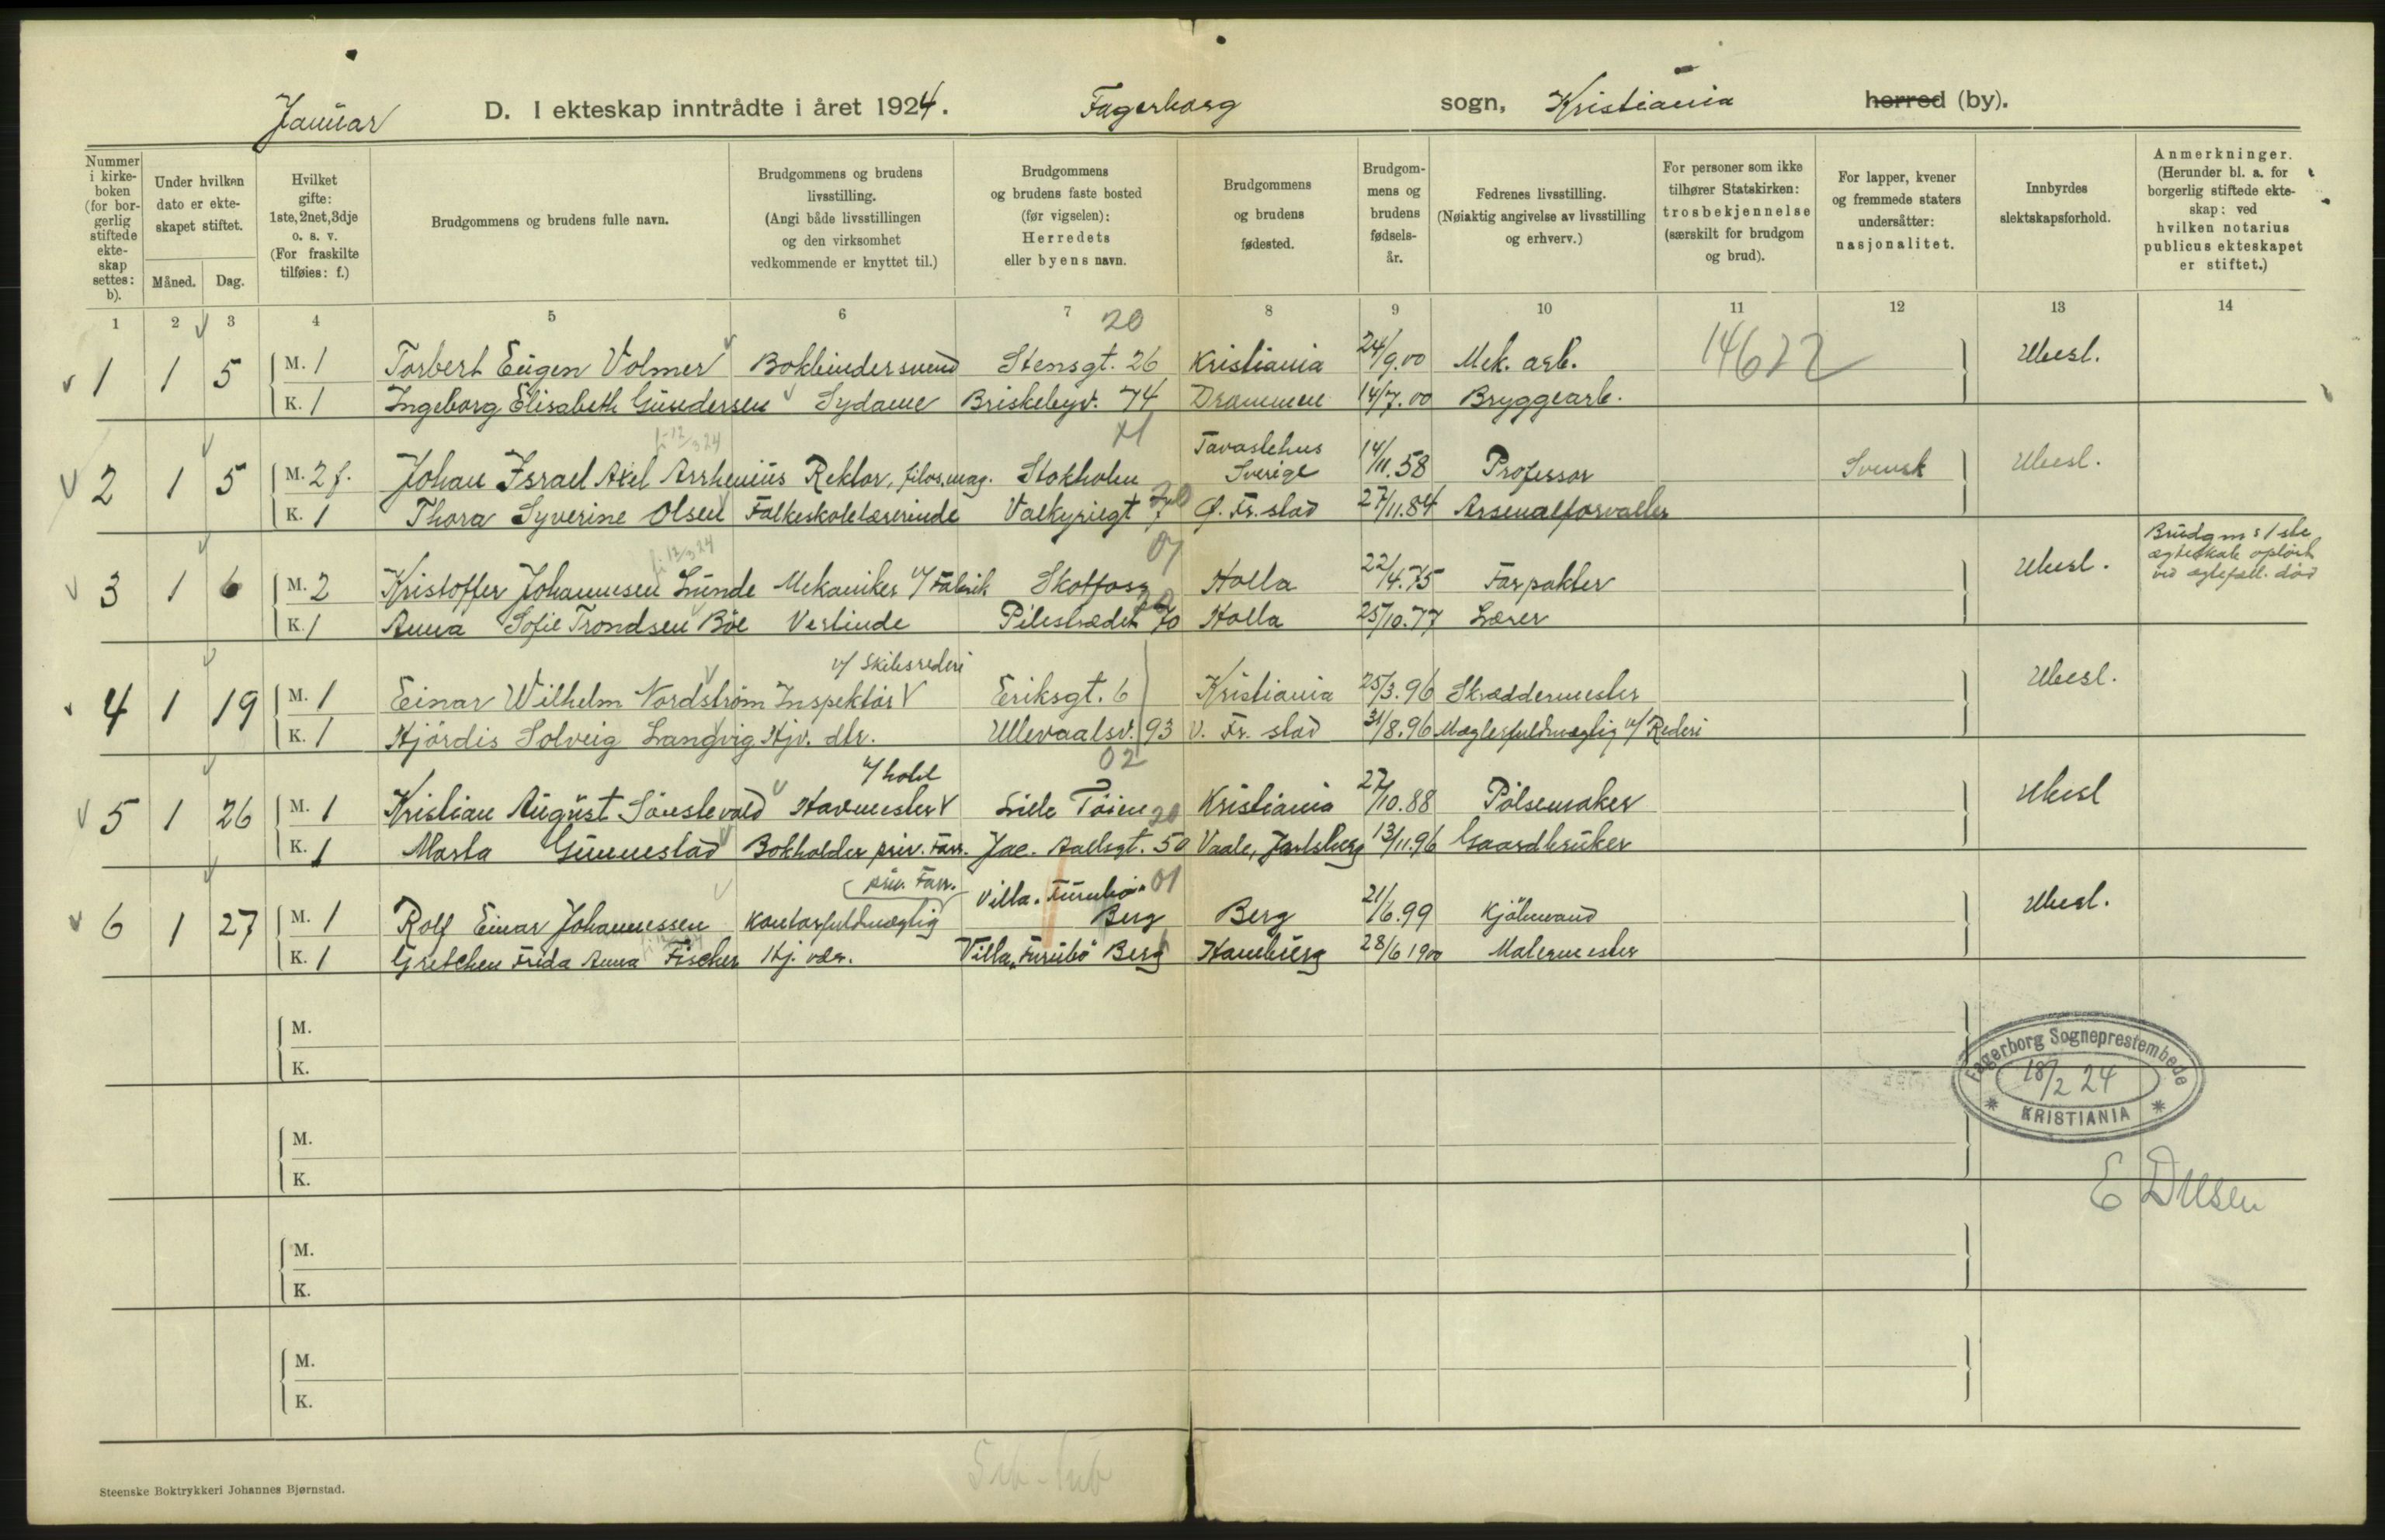 Januar D. I ekteskap inntrådte i året 1924. Fagerborg sogn, Kristiania herred (by).
Nummer i kirkeboken (for borgerlig stiftede ekteskap settes: b).
Under hvilken dato er ekteskapet stiftet.
Måned. Dag.
Hvilket gifte: 1ste, 2net, 3dje o. s. v. (For fraskilte tilføies: f.)
Brudgommens og brudens fulle navn.
Brudgommens og brudens livsstilling. (Angi både livsstillingen og den virksomhet vedkommende er knyttet til.)
Brudgommens og brudens faste bosted (før vigselen): Herredets eller byens navn.
Brudgommens og brudens fødested.
Brudgommens og brudens fødselsår.
Fedrenes livsstilling. (Nøiaktig angivelse av livsstilling og erhverv.)
For personer som ikke tilhører Statskirken: trosbekjennelse (særskilt for brudgom og brud).
For lapper, kvener og fremmede staters undersåtter: nasjonalitet.
Innbyrdes slektskapsforhold.
Anmerkninger. (Herunder bl. a. for borgerlig stiftede ekteskap: ved hvilken notarius publicus ekteskapet er stiftet.)
1 2 3 4 5 6 7 8 9 10 11 12 13 14
20
1 1 5 M. 1 Torbert Eugen Volmer Bokbindersvend Stensgt. 26 Kristiania 24/9.00 Mek. arb. 14622 Ubesl.
K. 1 Ingeborg Elisabeth Gundersen Sydame Briskebyv. 74 Drammen 14/7.00 Bryggearb.
2 1 5 M. 2 f. Johan Israel Axel Arrhenius Rektor, filos. mag. Stokholm Tavastehus Sverige 14/11.58 Professor Svensk Ubesl.
K. 1 Thora Syverine Olsen Folkeskolelærerinde Valkyriegt 7 Ø. Fr.stad 27/11.84 Arsenalforvalter
3 1 6 M. 2 Kristoffer Johannesen Lunde Mekaniker v/ Fabrik Skotfoss Holla 22/4.75 Forpakter Ubesl. Brudgm's 1ste ægteskab opløst ved ægtefæll. død
K. 1 Anna Sofie Trondsen Böe Vertinde Pilestrædet 70 Holla 25/10.77 Lærer
v/ Skibsrederi
4 1 19 M. 1 Einar Wilhelm Nordström Inspektör Eriksgt. 6 Kristiania 25/3.96 Skræddermester Ubesl.
K. 1 Hjördis Solveig Langvig Hjv. dtr. Ullevaalsv. 93 V. Fr. stad 31/8.96 Mæglerfuldmægtig v/ Rederi
02
v/ hotel
5 1 26 M. 1 Kristian August Sönstevold Hovmester Lille Töien Kristiania 27/10.88 Pölsemaker Ubesl
K. 1 Marta Gunnestad Bokholder priv. Forr. Jac. Aallsgt. 50 Vaale, Jarlsberg 13/11.96 Gaardbruker
priv. Forr. Villa "Furubo" 01
6 1 27 M. 1 Rolf Einar Johannessen Kontorfuldmægtig Berg Berg 21/6.99 Kjöbmand Ubesl.
K. 1 Gretchen Frida Anna Fischer Hj. vær. Villa "Furubo" Berg Hamburg 28/6 1900 Malermester
M.
K.
Fagerborg Sogneprestembede
18/2 24
KRISTIANIA
M.
K.
M.
K.
M.
K.
Steenske Boktrykkeri Johannes Bjørnstad.